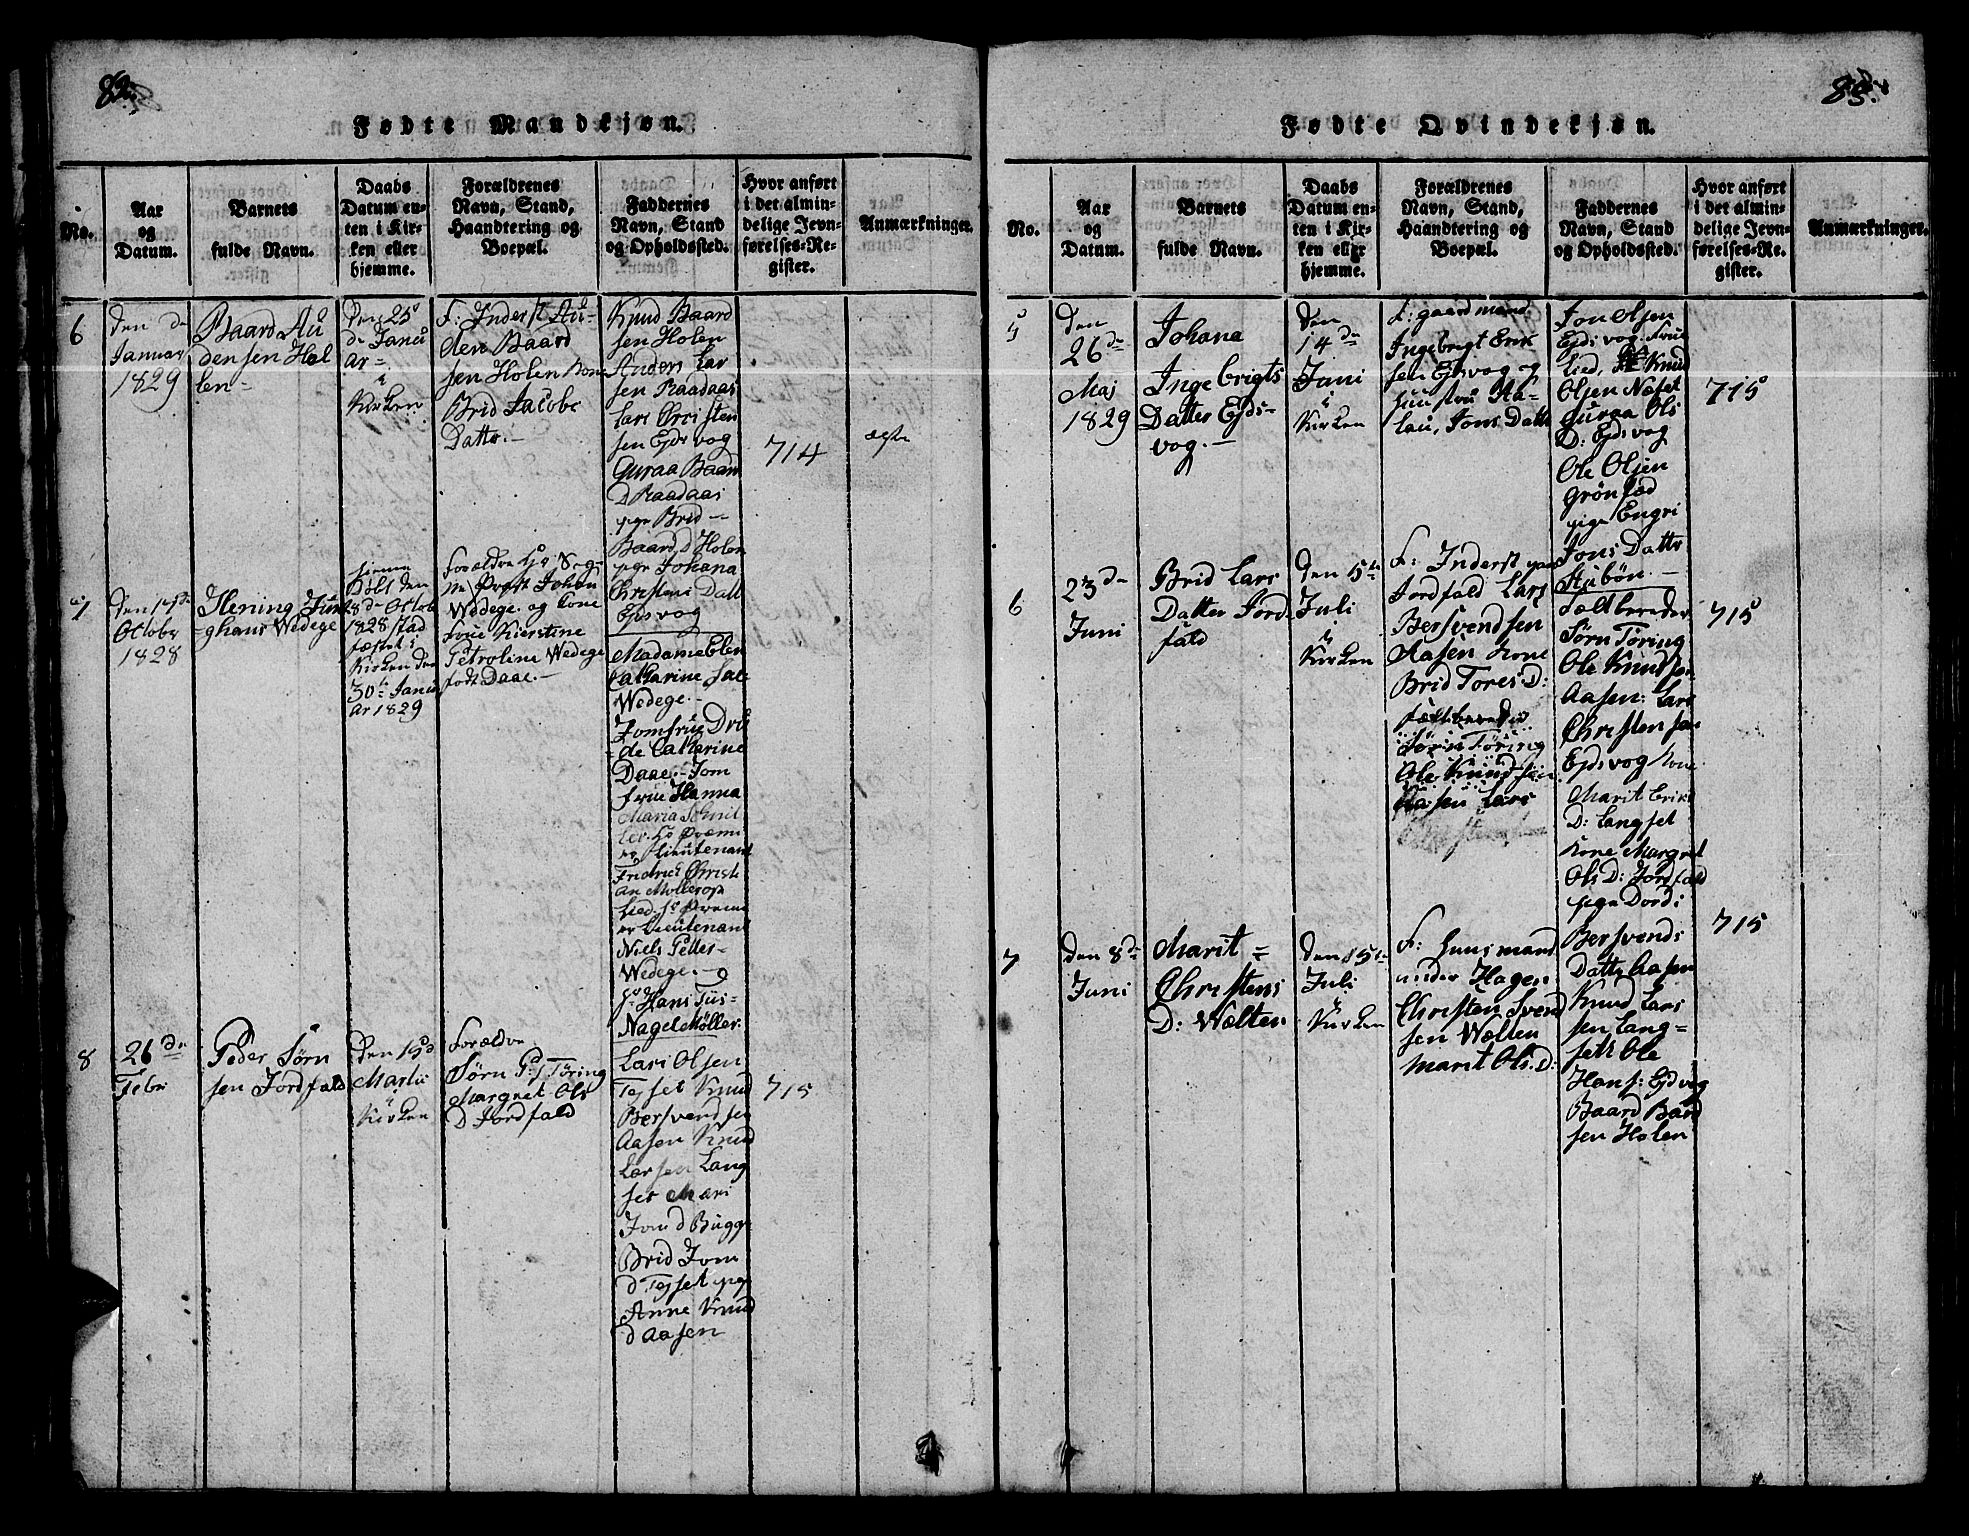 Fødte Mandkjøn.
No.
Aar
og
Datum.
Barnets
fulde Navn.
Daabs
Datum en-
ten i Kir-
ken eller
hjemme.
Forældrenes
Navn, Stand,
Haandtering og
Boepæl.
Faddernes
Navn, Stand
og Opholdssted.
Hvor anført
i det almin-
delige Jevn-
førelses-Re-
gister.
Anmærkninger.
6
Den
Januar
1829
Baard Au
densen Hol
len-
Den 25
d Janu
ar-
i
Kirken
F: Inderst Au-
den Baard
sen Holen
Brid Jacobs
Datter.-
Knud Baard
sen Holen
Anders Lar
sen Raadaas
Lars Christen
sen Ejdsvog
Guraa Baard
D Raadaas
pge Brid -
Baard d Holen
pge Johana
Christens Datt
Ejdsvog
714
ægte
7
October
1828
Hening Jun
ghans Wedege
Döbt den
28 d Octob
1828 stad
fæstet i
Kirken den
30te Janu
ar 1829
Foreldre
Provst Johan
Wedege. og Kone
Frue Kierstine
Petroline Wedege
født Daae.-
Madame Elen
Catharine
Wedege.-
Jomfrue Dru
de Catharine
Daae.- Jom
frue Hanna
Maria
Premi
er Lieutenant
Fridrich Christi
an Møllerop
Premi
er Lieutenant
Niels Petter
Wedege.- og
Hans
Nagel Møller.
8
26 de
Febr
Peder Sörn
sen Jordfald
Den 15 d
Marts
i
Kirken
Forældre
Sörn P: Töring
Margret Ols
D Jordfald
Lars Olsen
Tejset Knud
Bersvendsen
Aasen Knud
Larsen Lang
set Mari
Jon d Bugge
Brid Jom
d Tejset pge
Anne Knud
d Aasen
715
85.
Fødte Qvindekjøn.
No.
Aar
og
Datum.
Barnets
fulde Navn.
Daabs
Datum en-
ten i Kir-
ken eller
hjemme.
Forældrenes
Navn, Stand,
Haandtering og
Boepæl.
Faddernes
Navn, Stand
og Opholdssted.
Hvor anført
i det almin-
delige Jevn-
førelses-Re-
gister.
Anmærkninger.
5
Den
26 de
Maj
1829
Johana
Ingebrigts
Datter Ejds-
vog.-
Den
14 de
Juni
i
Kirken
F: gaardmand
Ingebrigt Erik
sen Ejdsvog og
hustru
Jons Datt
Jon Olsen
Ejdsvog.
Knud
Olsen Næset
Guraa Ols
D: Ejdsvog
Ole Olsen
Grönfæd
pige Engri
Jons Datter
Stubön.-
715
6
23 de
Juni
Brid Lars
Datter Jord
fald
Den 5te
Juli
i
Kirken
F: Inderst paa
Jordfald Lars
Bersvendsen
Aasen Kone
Brid Tores D:
Sörn Töring
Ole Knudsen
Aasen Lars
Sörn Töring
Ole Knudsen
Aasen: Lars
Christensen
Ejdsvog Kone
Marit Eriks
D: Langset
Kone Margret
Ols D: Jordfald
pige Dordi
Bersvends
Datter Aasen
715
7
Den 8 de
Juni
Marit
Christens
D: Wælten
Den 5te
Juli
i
Kirken
F: Huusmand
under Hagen
Christen Svend
sen Wælten
Marit Ols. D:
Knud Lars
sen Lang-
seth Ole
Hans: Ejdvog
Baard Bard
sen Holen
715